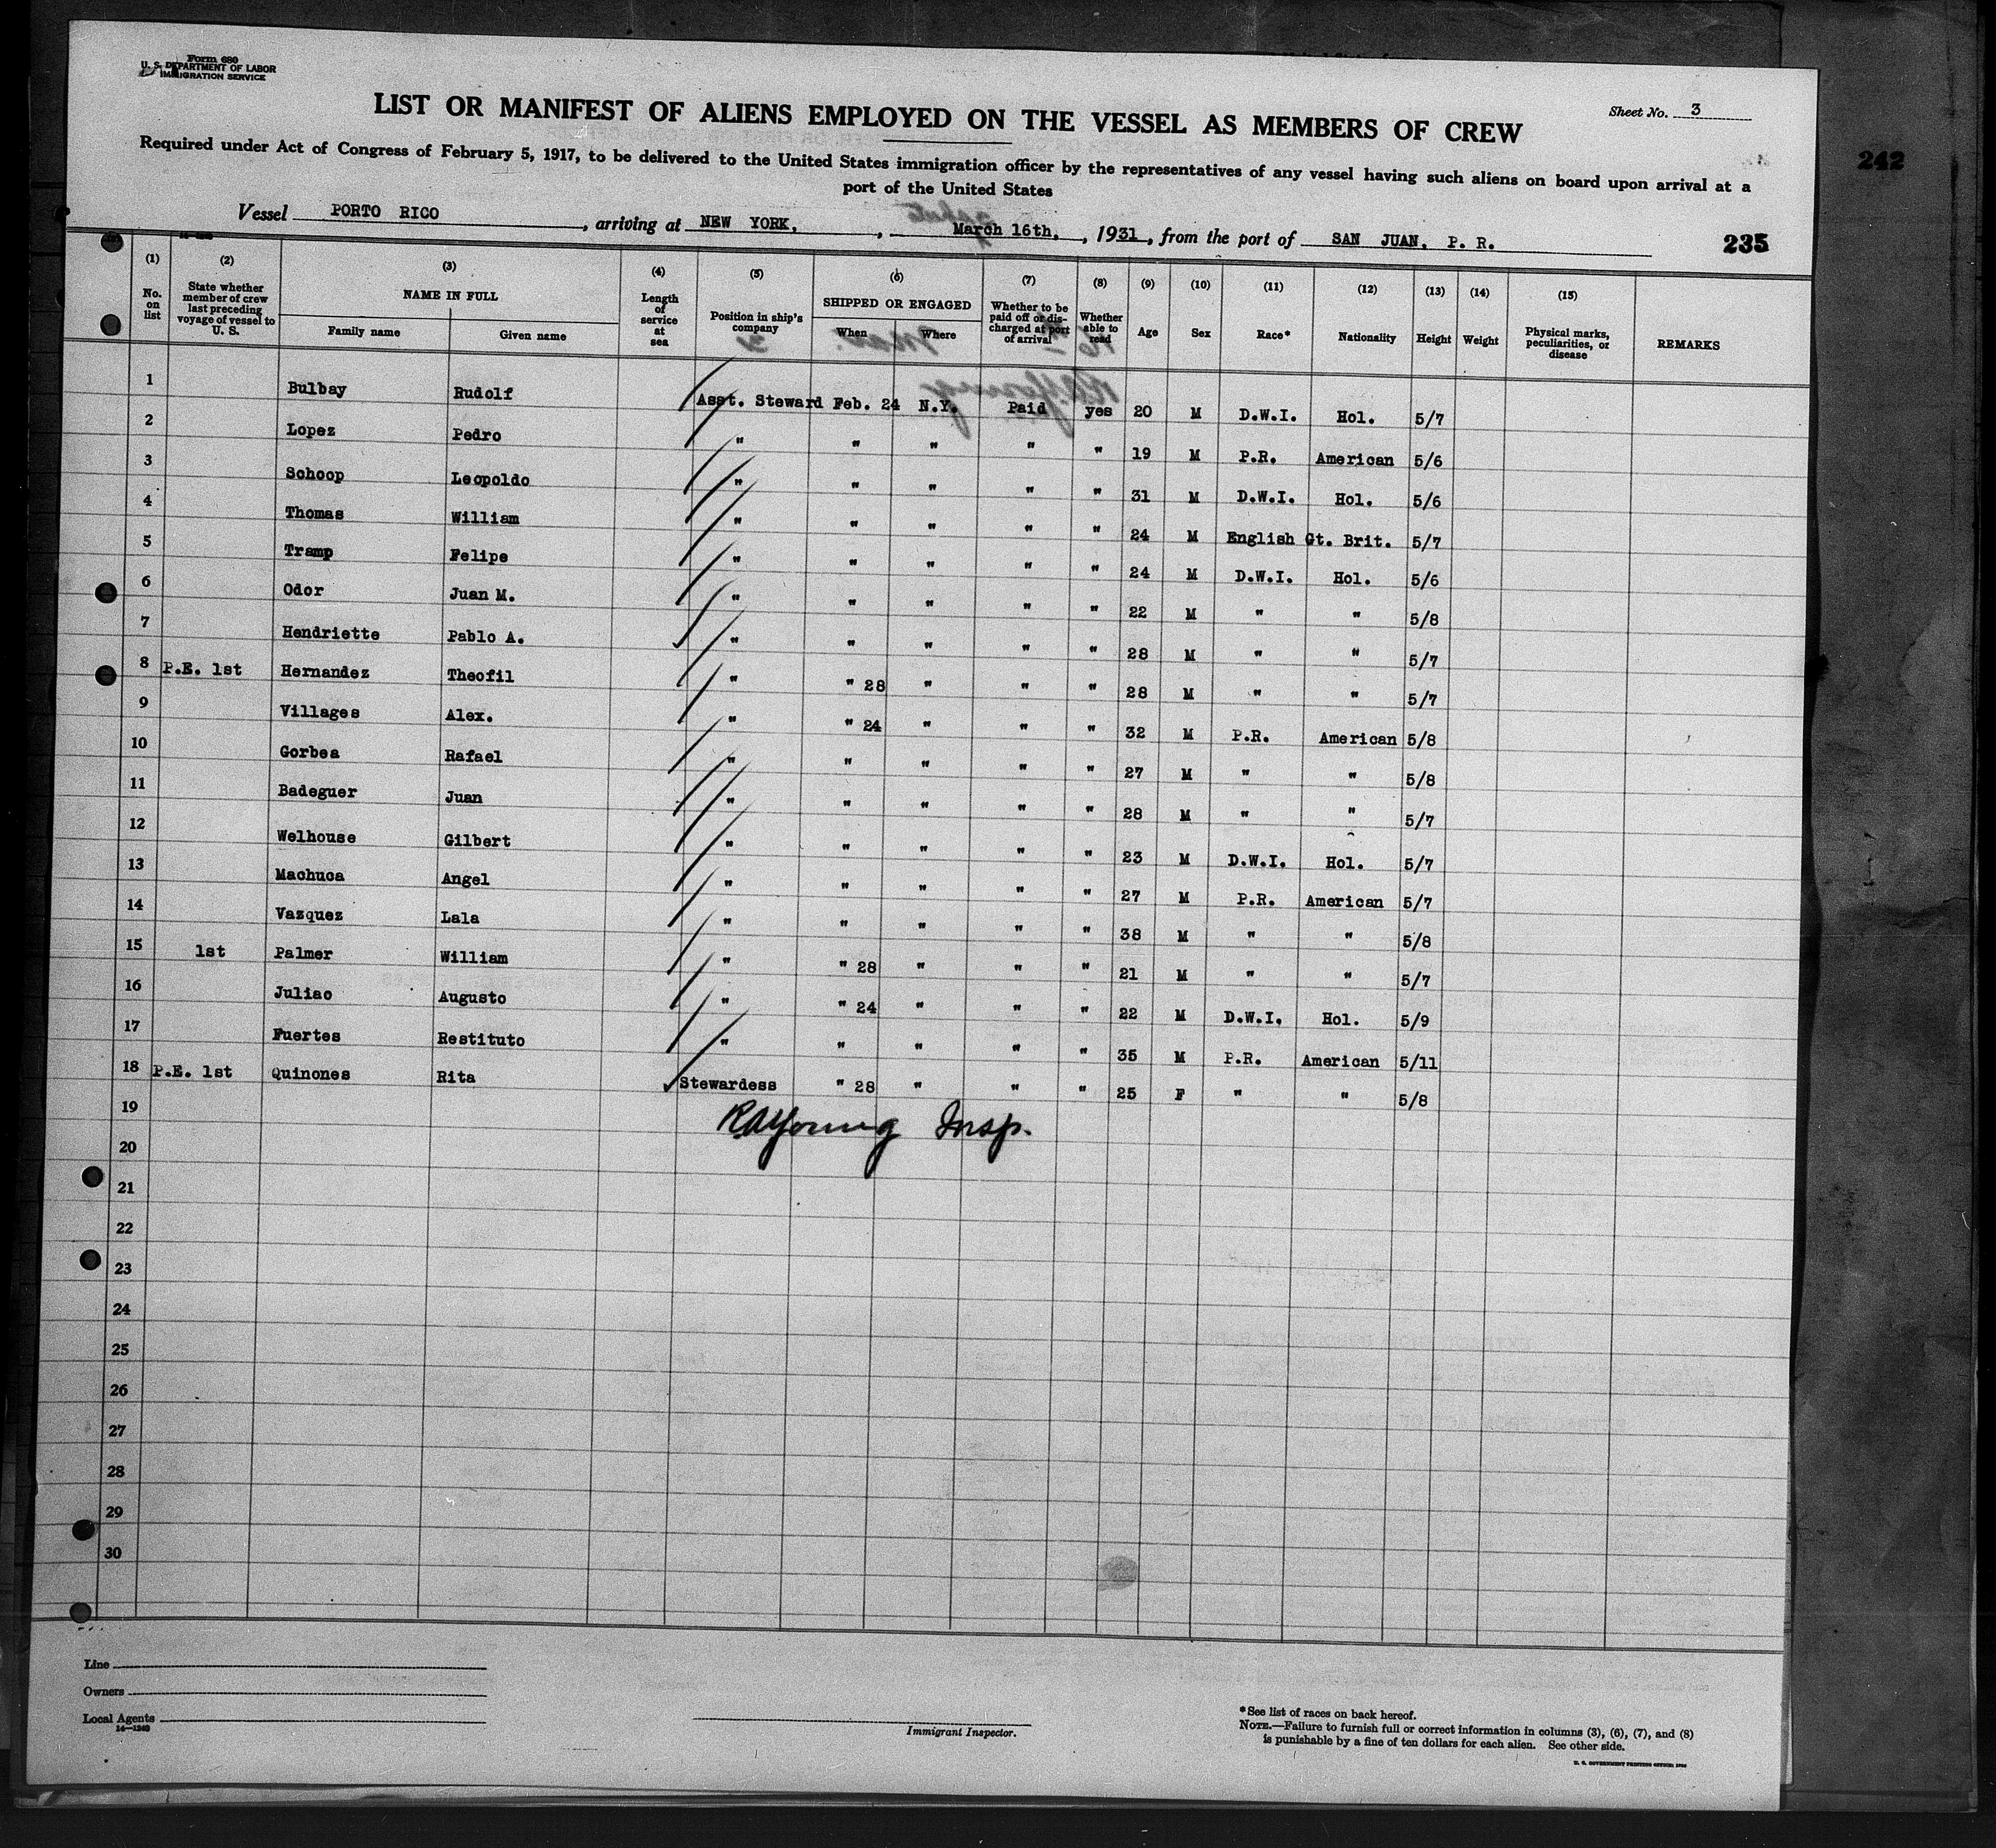 Form 680
U. S. DEPARTMENT OF LABOR
IMMIGRATION SERVICE
Sheet No. 3
LIST OR MANIFEST OF ALIENS EMPLOYED ON THE VESSEL AS MEMBERS OF CREW
Required under Act of Congress of February 5, 1917, to be delivered to the United States immigration officer by the representatives of any vessel having such aliens on board upon arrival at a
port of the United States
242
Vessel PORTO RICO, arriving at NEW YORK, , March 16th, , 1931, from the port of SAN JUAN, P. R.
235
(1) (2) (3) (4) (5) (6) (7) (8) (9) (10) (11) (12) (13) (14) (15)
No. on list State whether member of crew last preceding voyage of vessel to U. S. NAME IN FULL Family name Given name Length of service at sea Position in ship's company SHIPPED OR ENGAGED When Where Whether to be paid off or discharged at port of arrival Whether able to read Age Sex Race* Nationality Height Weight Physical marks, peculiarities, or disease REMARKS
1 Bulbay Rudolf Asst. Steward Feb. 24 N.Y. Paid yes 20 M D.W.I. Hol. 5/7
2 Lopez Pedro " " " " " 19 M P.R. American 5/6
3 Schoop Leopoldo " " " " " 31 M D.W.I. Hol. 5/6
4 Thomas William " " " " " 24 M English Gt. Brit. 5/7
5 Tramp Felipe " " " " " 24 M D.W.I. Hol. 5/6
6 Odor Juan M. " " " " " 22 M " " 5/8
7 Hendriette Pablo A. " " " " " 28 M " " 5/7
8 P.E. 1st Hernandez Theofil " " 28 " " " 28 M " " 5/7
9 Villages Alex. " " 24 " " " 32 M P.R. American 5/8
10 Gorbea Rafael " " " " " 27 M " " 5/8
11 Badeguer Juan " " " " " 28 M " " 5/7
12 Welhouse Gilbert " " " " " 23 M D.W.I. Hol. 5/7
13 Machuca Angel " " " " " 27 M P.R. American 5/7
14 Vazquez Lala " " " " " 38 M " " 5/8
15 1st Palmer William " " 28 " " " 21 M " " 5/7
16 Juliao Augusto " " 24 " " " 22 M D.W.I. Hol. 5/9
17 Fuertes Restituto " " " " " 35 M P.R. American 5/11
18 P.E. 1st Quinones Rita Stewardess " 28 " " " 25 F " " 5/8
19
RAYoung Insp.
20
21
22
23
24
25
26
27
28
29
30
Line
Owners
Local Agents
14—1240
Immigrant Inspector.
*See list of races on back hereof.
NOTE.—Failure to furnish full or correct information in columns (3), (6), (7), and (8)
is punishable by a fine of ten dollars for each alien. See other side.